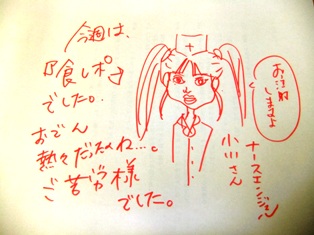 今週は、
『食しポ』
でした。
おでん
熱々だったね…。
ご苦労様
でした。
お注射
しますよ
ナースエンジェル
小川さん